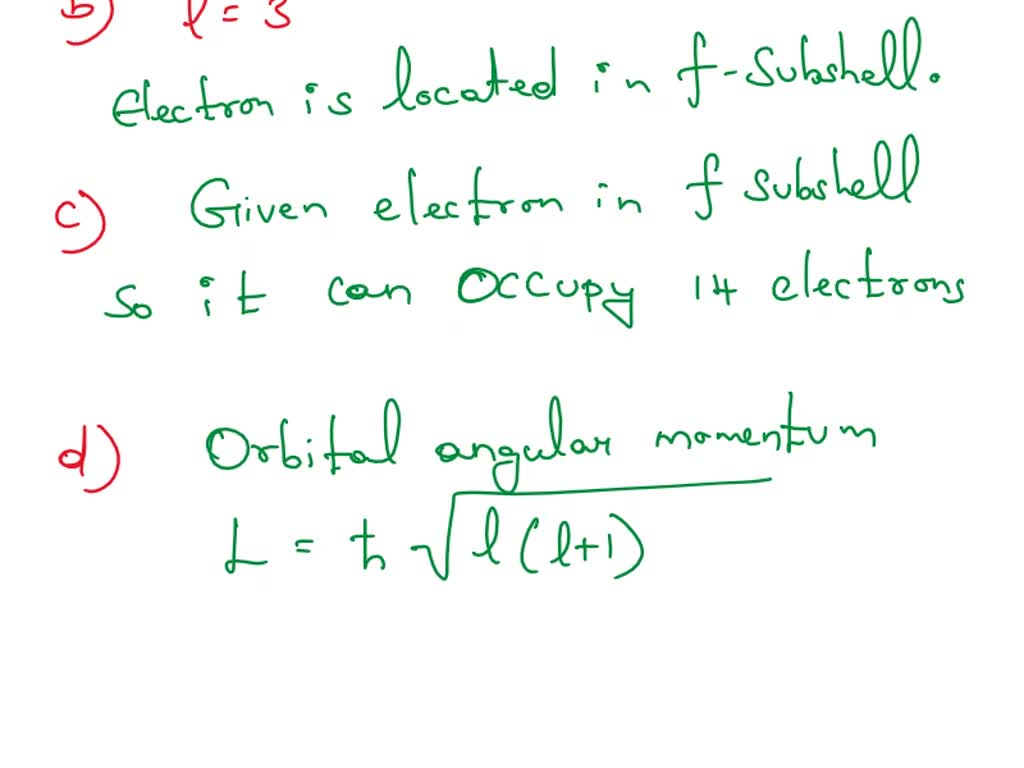 b) l = 3
Electron is located in f-Subshell.
c) Given electron in f subshell
so it can occupy 14 electrons
d) Orbital angular momentum
L = ħ √l(l+1)